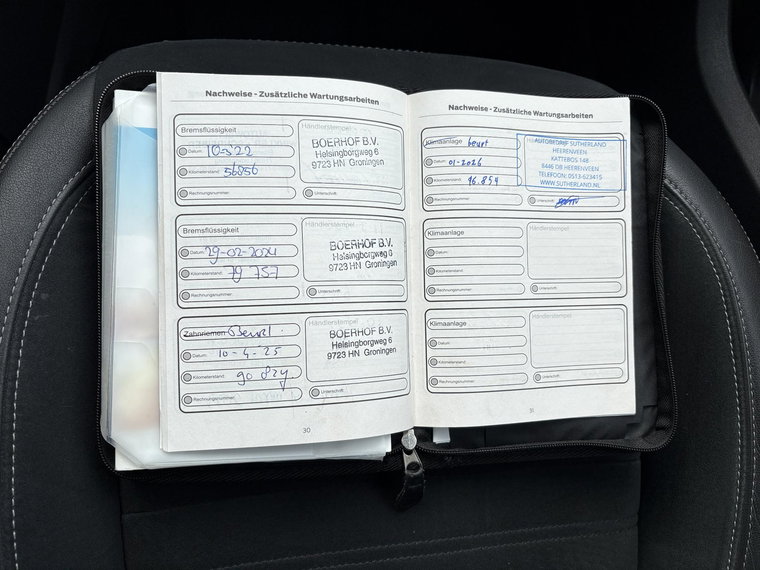 Nachweise - Zusätzliche Wartungsarbeiten
Bremsflüssigkeit
Händlerstempel
Datum: 10-5-22
Kilometerstand: 56856
Rechnungsnummer:
BOERHOF B.V.
Helsingborgweg 6
9723 HN Groningen
Unterschrift:
Bremsflüssigkeit
Händlerstempel
Datum: 29-02-2024
Kilometerstand: 79 757
Rechnungsnummer:
BOERHOF B.V.
Helsingborgweg 6
9723 HN Groningen
Unterschrift:
Zahnriemen Beurt.
Händlerstempel
Datum: 10-4-25
Kilometerstand:
Rechnungsnummer:
BOERHOF B.V.
Helsingborgweg 6
9723 HN Groningen
Unterschrift:
30
Nachweise - Zusätzliche Wartungsarbeiten
Klimaanlage beurt
Datum: 01-2026
Kilometerstand: 96.854
Rechnungsnummer:
AUTOBEDRIJF SUTHERLAND
HEERENVEEN
KATTEBOS 148
8446 DB HEERENVEEN
TELEFOON: 0513-623415
WWW.SUTHERLAND.NL
Unterschrift:
Klimaanlage
Händlerstempel
Datum:
Kilometerstand:
Rechnungsnummer:
Unterschrift:
Klimaanlage
Händlerstempel
Datum:
Kilometerstand:
Rechnungsnummer:
Unterschrift:
31